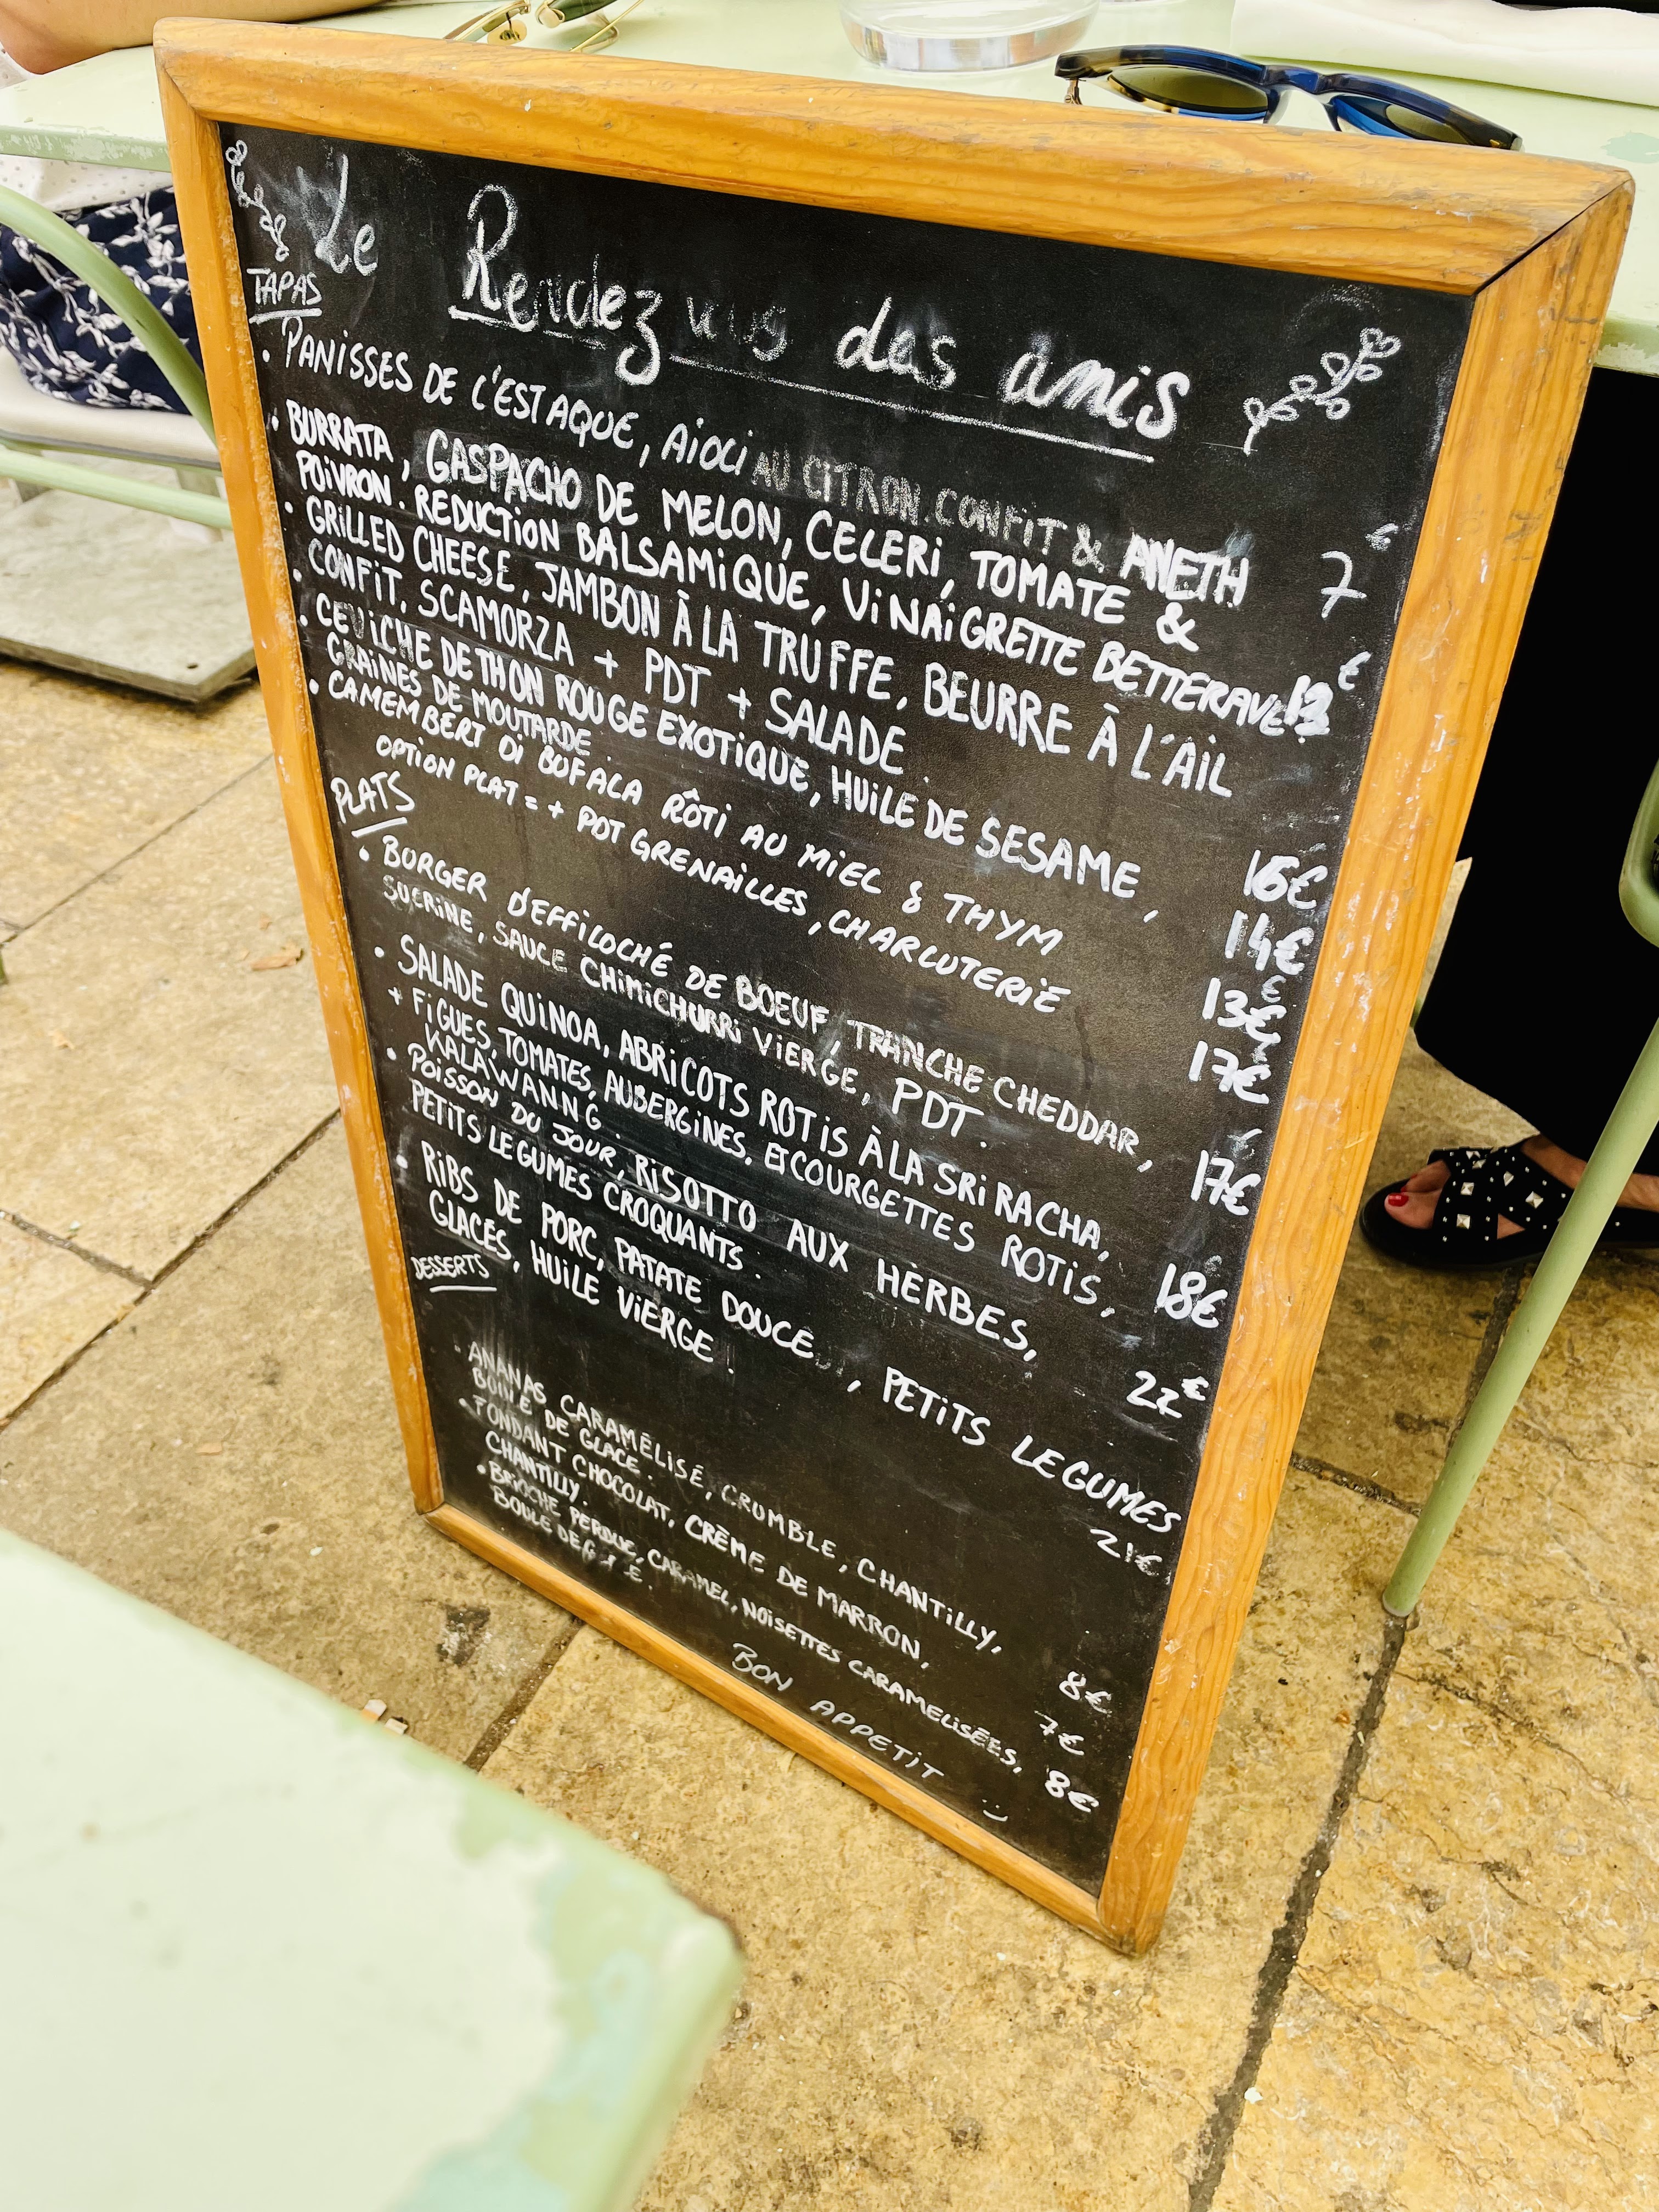 Le Rendez vous des amis
TAPAS
• PANISSES DE L'ESTAQUE, AIOLI AU CITRON CONFIT & ANETH 7€
• BURRATA, GASPACHO DE MELON, CELERI, TOMATE &
POIVRON. REDUCTION BALSAMIQUE, VINAIGRETTE BETTERAVE €
• GRILLED CHEESE, JAMBON À LA TRUFFE, BEURRE À L'AIL
CONFIT, SCAMORZA + PDT + SALADE. 16€
• CEVICHE DE THON ROUGE EXOTIQUE, HUILE DE SESAME,
GRAINES DE MOUTARDE. 14€
• CAMEMBERT DI BUFALA RÔTI AU MIEL & THYM 13€
OPTION PLAT = + PDT GRENAILLES, CHARCUTERIE 17€
PLATS
• BURGER D'EFFILOCHÉ DE BOEUF, TRANCHE CHEDDAR,
SUCRINE, SAUCE CHIMICHURRI VIERGE, PDT. 17€
• SALADE QUINOA, ABRICOTS ROTIS À LA SRIRACHA,
+ FIGUES, TOMATES, AUBERGINES, ET COURGETTES ROTIS,
KALAWANNG. 18€
• POISSON DU JOUR, RISOTTO AUX HERBES,
PETITS LEGUMES CROQUANTS. 22€
• RIBS DE PORC, PATATE DOUCE, PETITS LEGUMES
GLACÉS, HUILE VIERGE. 21€
DESSERTS
• ANANAS CARAMÉLISÉ, CRUMBLE, CHANTILLY,
BOULE DE GLACE. 8€
• FONDANT CHOCOLAT, CRÈME DE MARRON,
CHANTILLY. 7€
• BRIOCHE PERDUE, CARAMEL, NOISETTES CARAMELISÉES,
BOULE DE 8€
BON APPETIT :)